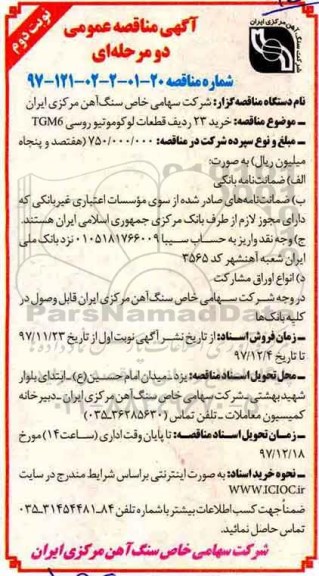 نوبت دوم
شرکت سنگ آهن مرکزی ایران
آگهی مناقصه عمومی
دو مرحله‌ای
شماره مناقصه ۲۰-۰۱-۲-۰۲-۱۲۱-۹۷
نام دستگاه مناقصه‌گزار: شرکت سهامی خاص سنگ‌آهن مرکزی ایران
ـ موضوع مناقصه: خرید ۲۳ ردیف قطعات لوکوموتیو روسی TGM6
ـ مبلغ و نوع سپرده شرکت در مناقصه: ۷۵۰/۰۰۰/۰۰۰ (هفتصد و پنجاه
میلیون ریال) به صورت:
الف) ضمانت‌نامه بانکی
ب) ضمانت‌نامه‌های صادر شده از سوی مؤسسات اعتباری غیربانکی که
دارای مجوز لازم از طرف بانک مرکزی جمهوری اسلامی ایران هستند.
ج) وجه نقد واریز به حساب سیبا ۰۱۰۵۱۸۱۷۶۶۰۰۹ نزد بانک ملی
ایران شعبه آهنشهر کد ۳۵۶۵
د) انواع اوراق مشارکت
در وجه شرکت سهامی خاص سنگ‌آهن مرکزی ایران قابل وصول در
کلیه بانک‌ها
ـ زمان فروش اسناد: از تاریخ نشر آگهی نوبت اول از تاریخ ۹۷/۱۱/۲۳
تا تاریخ ۹۷/۱۲/۴
ـ محل تحویل اسناد مناقصه: یزد ـ میدان امام حسین (ع) ـ ابتدای بلوار
شهید بهشتی ـ شرکت سهامی خاص سنگ‌آهن مرکزی ایران ـ دبیرخانه
کمیسیون معاملات ـ تلفن تماس (۳۶۲۸۵۶۳۰-۰۳۵)
ـ زمان تحویل اسناد مناقصه: تا پایان وقت اداری (ساعت ۱۴) مورخ
۹۷/۱۲/۱۸
ـ نحوه خرید اسناد: به صورت اینترنتی بر اساس شرایط مندرج در سایت
WWW.ICIOC.ir
ضمناً جهت کسب اطلاعات بیشتر با شماره تلفن ۸۴ـ۳۱۴۵۴۴۸۱-۰۳۵
تماس حاصل نمائید.
شرکت سهامی خاص سنگ آهن مرکزی ایران
ParsNamadData